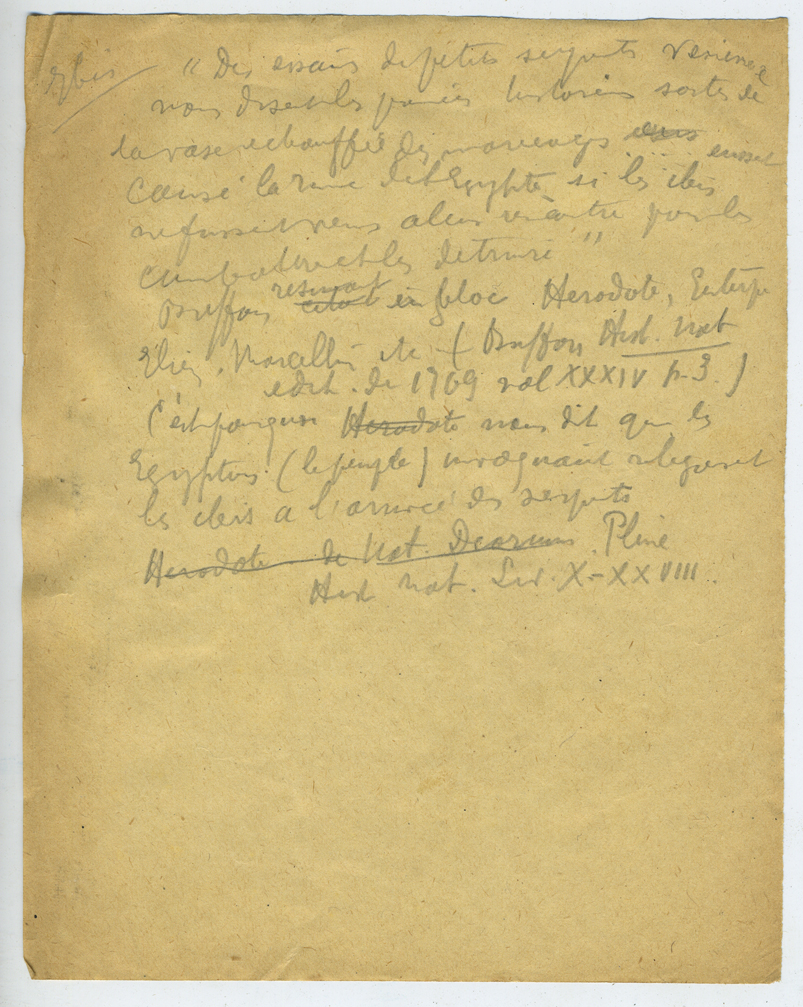 Ibis
" Des essaims de petits serpents venimeux
nous disent les premiers historiens sortis de
la vase echauffée des marecages eussent
causé la ruine de l'Egypte si les ibis
ne fussent venus a leur rencontre pour les
combattre et les detruire "
Buffon resumant en bloc Herodote, Euterpe
Elien, Marcellin etc ( Buffon Hist. Nat
edit. de 1769 vol XXXIV p. 3. )
C'est pourquoi Herodote nous dit que les
Egyptiens (le peuple) invoquaient
les ibis a l'arrivée des serpents
Herodote de Nat. Deorum. Pline
Hist nat. Liv. X-XXVIII.